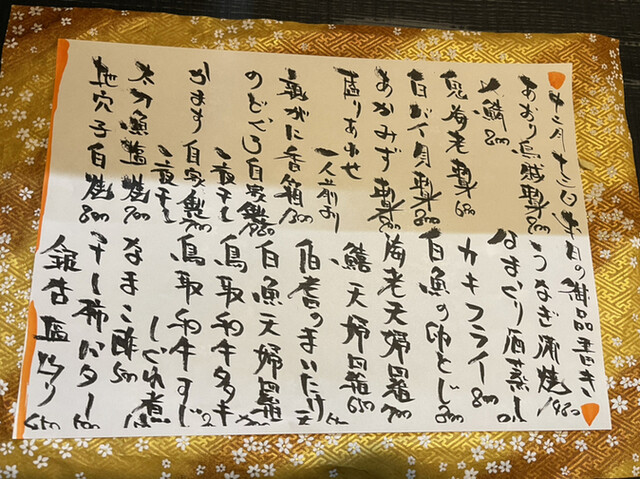 十二月十三日本日の御品書き
あおり烏賊製
〆鯖 800
鬼海老製 600
白バイ貝製 800
あかみず製
盛りあわせ
一人前より
親がに香箱 1300
のどぐろ自家製
一夜干し
かます自家製 700
一夜干し
太刀魚塩焼 700
地穴子白焼 800
うなぎ蒲焼
はまぐり酒蒸し
カキフライ 800
白魚の卵とじ 800
海老天婦羅 700
鱚天婦羅 650
伯耆のまいたけ天
白魚天婦羅
鳥取和牛タタキ
鳥取和牛すじ
しぐれ煮
なまこ酢 500
干し柿バター
銀杏塩炒り